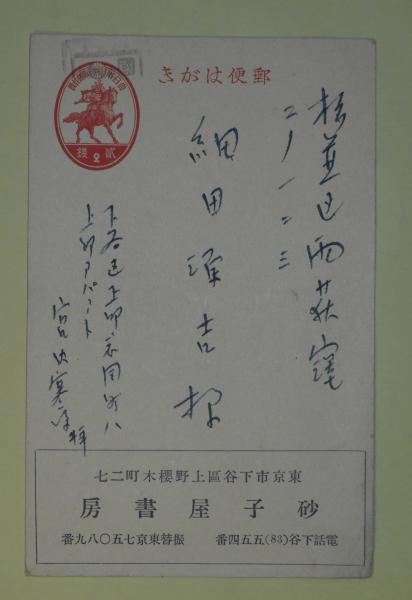 郵便はがき
大日本帝國郵便
貳 2 錢
杉並區西荻窪
二ノ一二三
細田源吉様
下谷區上
アパート
宮内寒彌
東京市下谷區上野櫻木町二七
砂子屋書房
電話下谷(83)五五四番 振替東京七五〇八九番